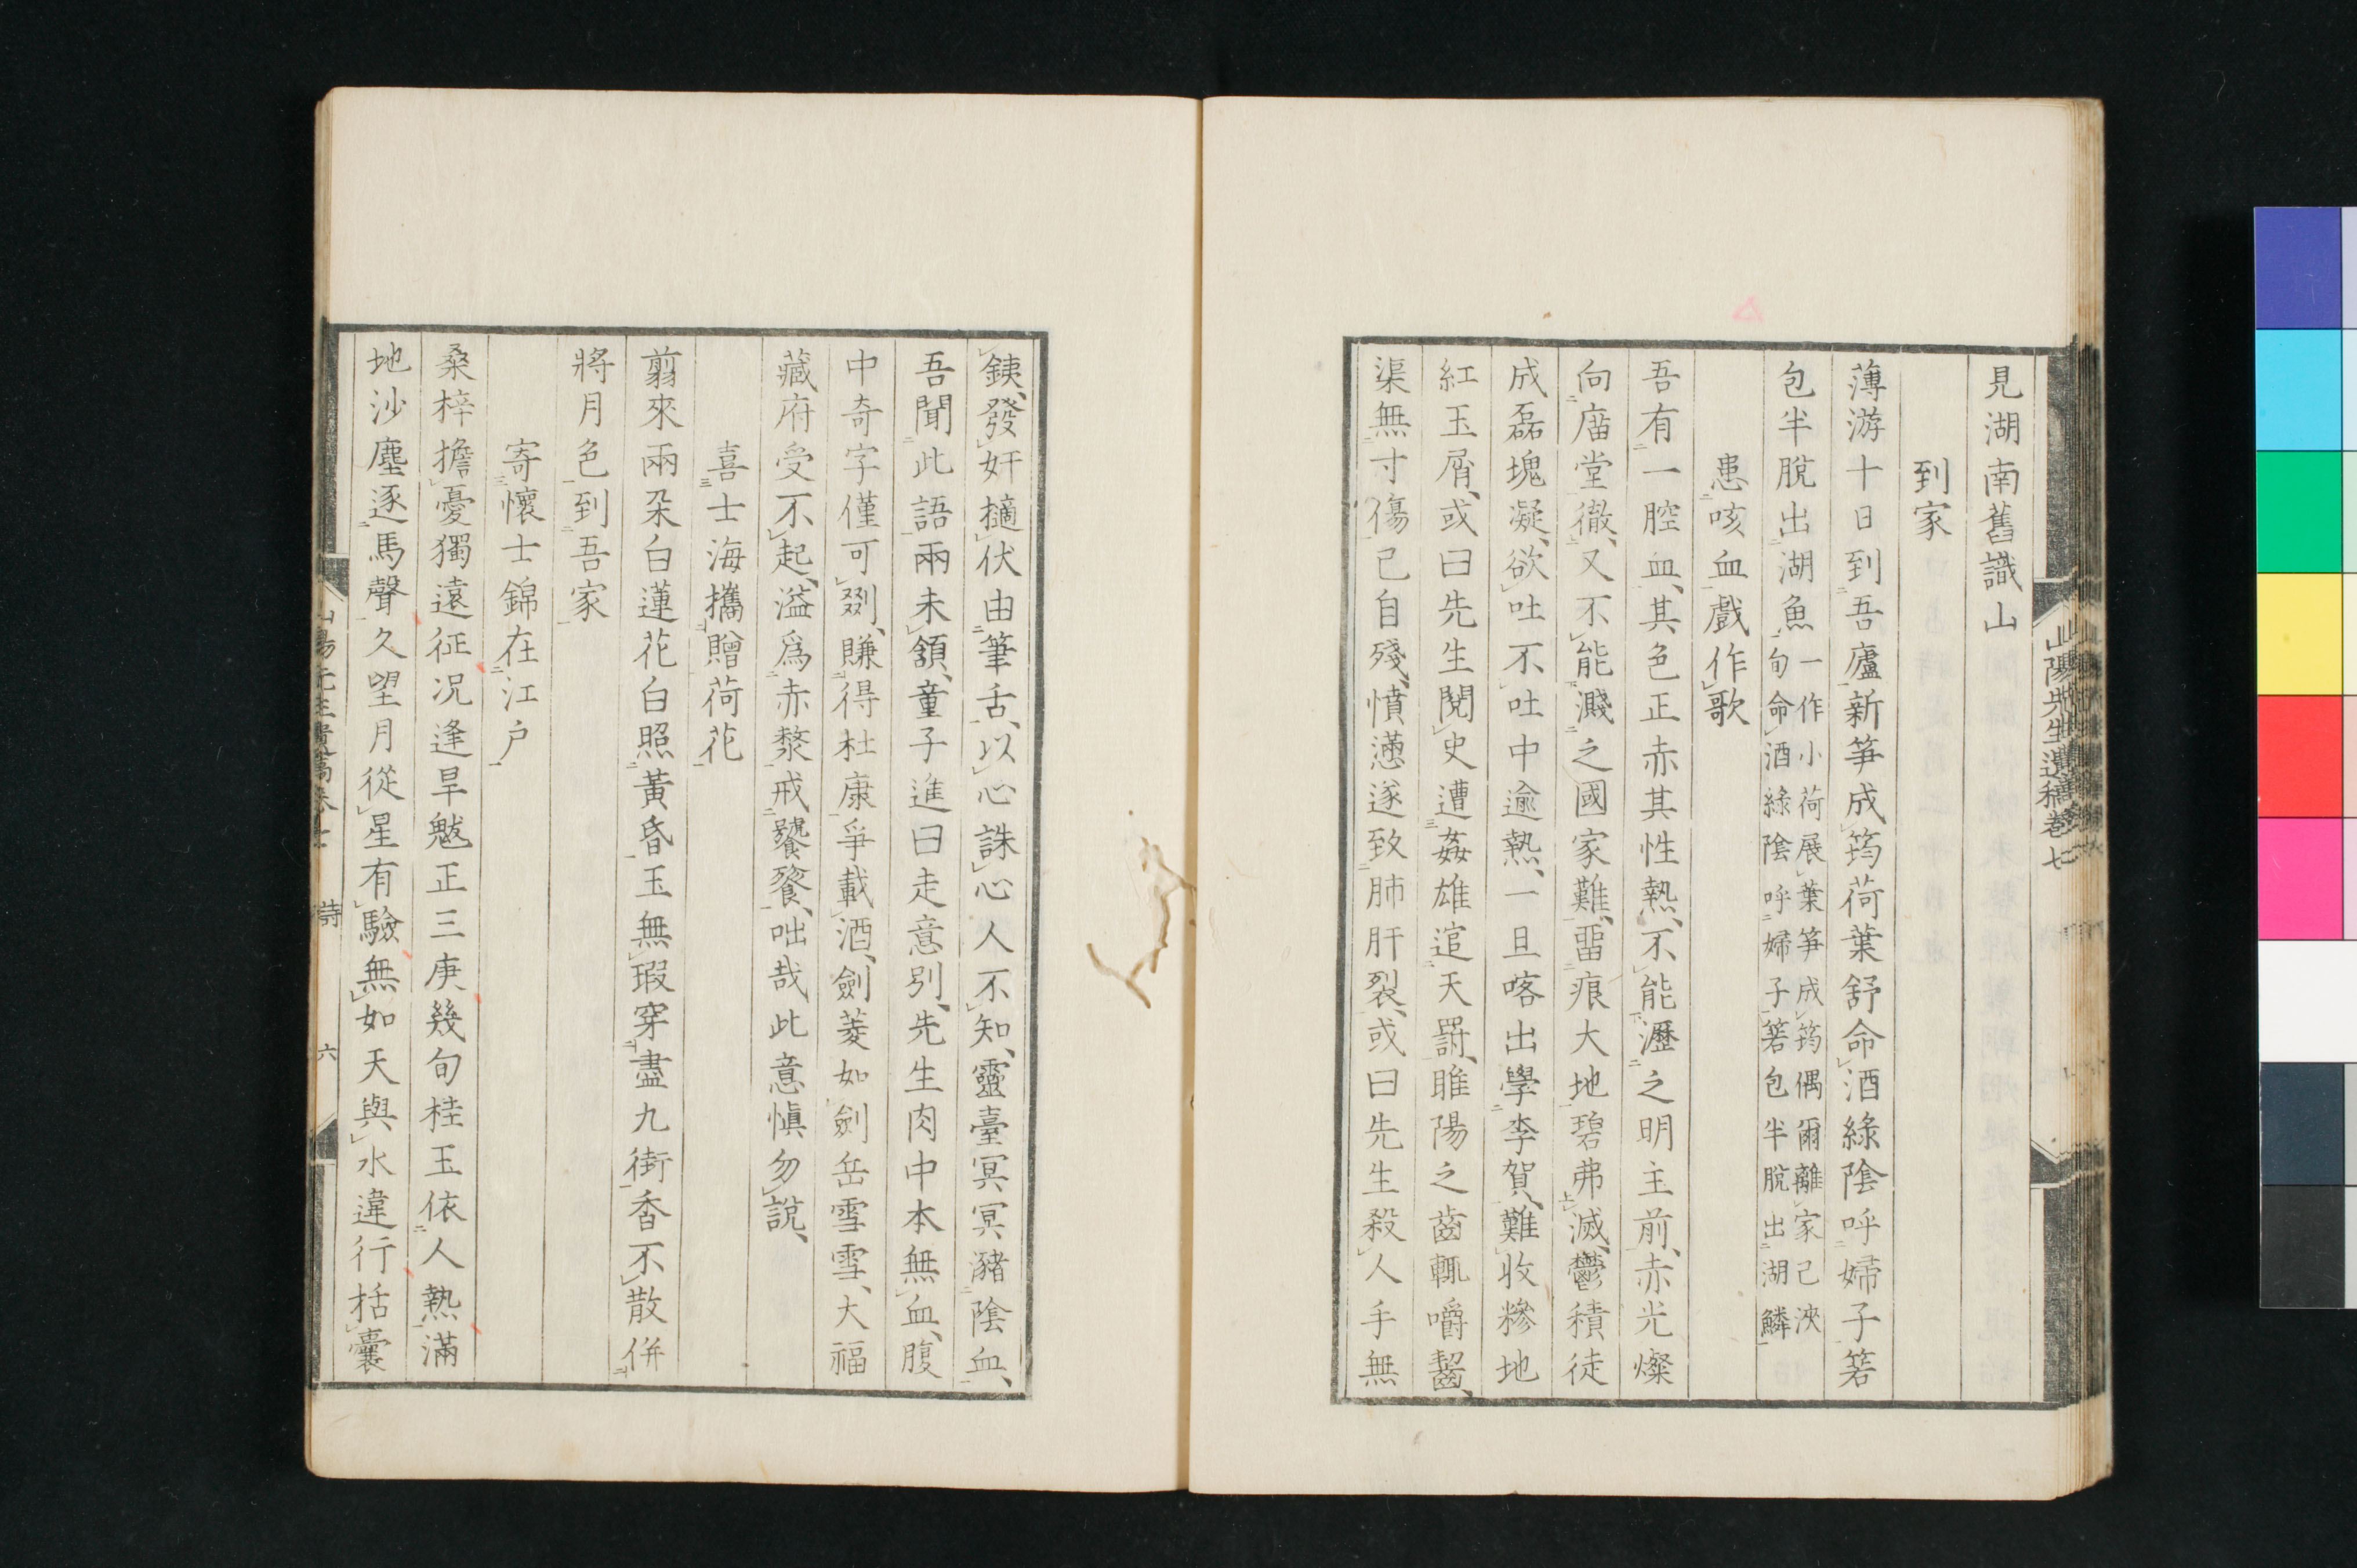 見湖南舊識山
到家
薄游十日到吾廬新笋成筠荷葉舒命酒綠陰呼婦子箬
包半脫出湖魚
一作小荷展葉笋成筠偶爾離家已浹
旬命酒綠陰呼婦子箬包半脫出湖鱗
患咳血戲作歌
吾有一腔血、其色正赤其性熱、不能瀝之明主前、赤光燦
向廟堂徹、又不能濺之國家難、畱痕大地碧弗滅、鬱積徒
成磊塊凝、欲吐不吐中逾熱、一旦喀出學李賀、難收糝地
紅玉屑、或曰先生閱史遭姦雄逭天罰、睢陽之齒輒嚼齧、
渠無寸傷已自殘、憤懣遂致肺肝裂、或曰先生殺人手無
銕、發奸擿伏由筆舌、以心誅心人不知、靈臺冥冥瀦陰血、
吾聞此語兩未頷、童子進曰走意別、先生肉中本無血、腹
中奇字僅可剟、賺得杜康爭載酒、劍菱如劍岳雪雪、大福
藏府受不起、溢爲赤漦戒饕餮、咄哉此意愼勿說、
喜士海攜贈荷花
翦來兩朶白蓮花白照黃昏玉無瑕穿盡九街香不散倂
將月色到吾家
寄懷士錦在江戶
桑梓擔憂獨遠征况逢旱魃正三庚幾旬桂玉依人熱滿
地沙塵逐馬聲久望月從星有驗無如天與水違行括囊
山陽先生遺稿卷七
詩
六